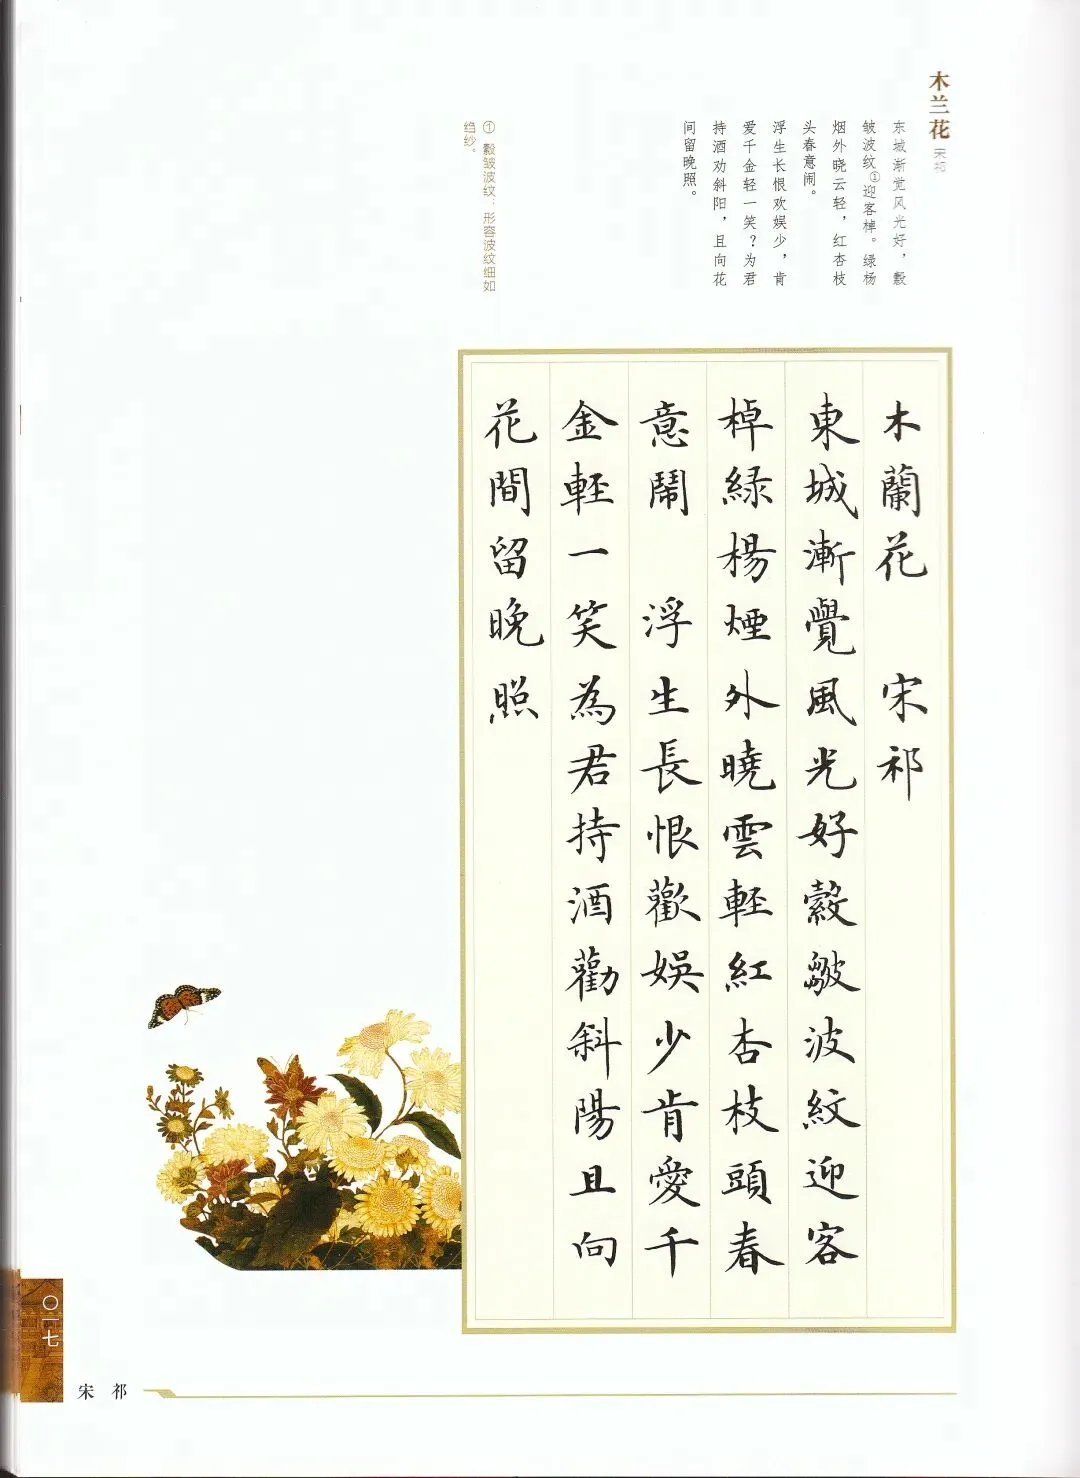 木兰花 宋祁
东城渐觉风光好，縠
皱波纹①迎客棹。绿杨
烟外晓云轻，红杏枝
头春意闹。
浮生长恨欢娱少，肯
爱千金轻一笑？为君
持酒劝斜阳，且向花
间留晚照。
① 縠皱波纹：形容波纹细如
绉纱。
木蘭花 宋祁
東城漸覺風光好縠皺波紋迎客
棹緑楊煙外曉雲輕紅杏枝頭春
意鬧 浮生長恨歡娛少肯愛千
金輕一笑為君持酒勸斜陽且向
花間留晚照
〇一七
宋祁